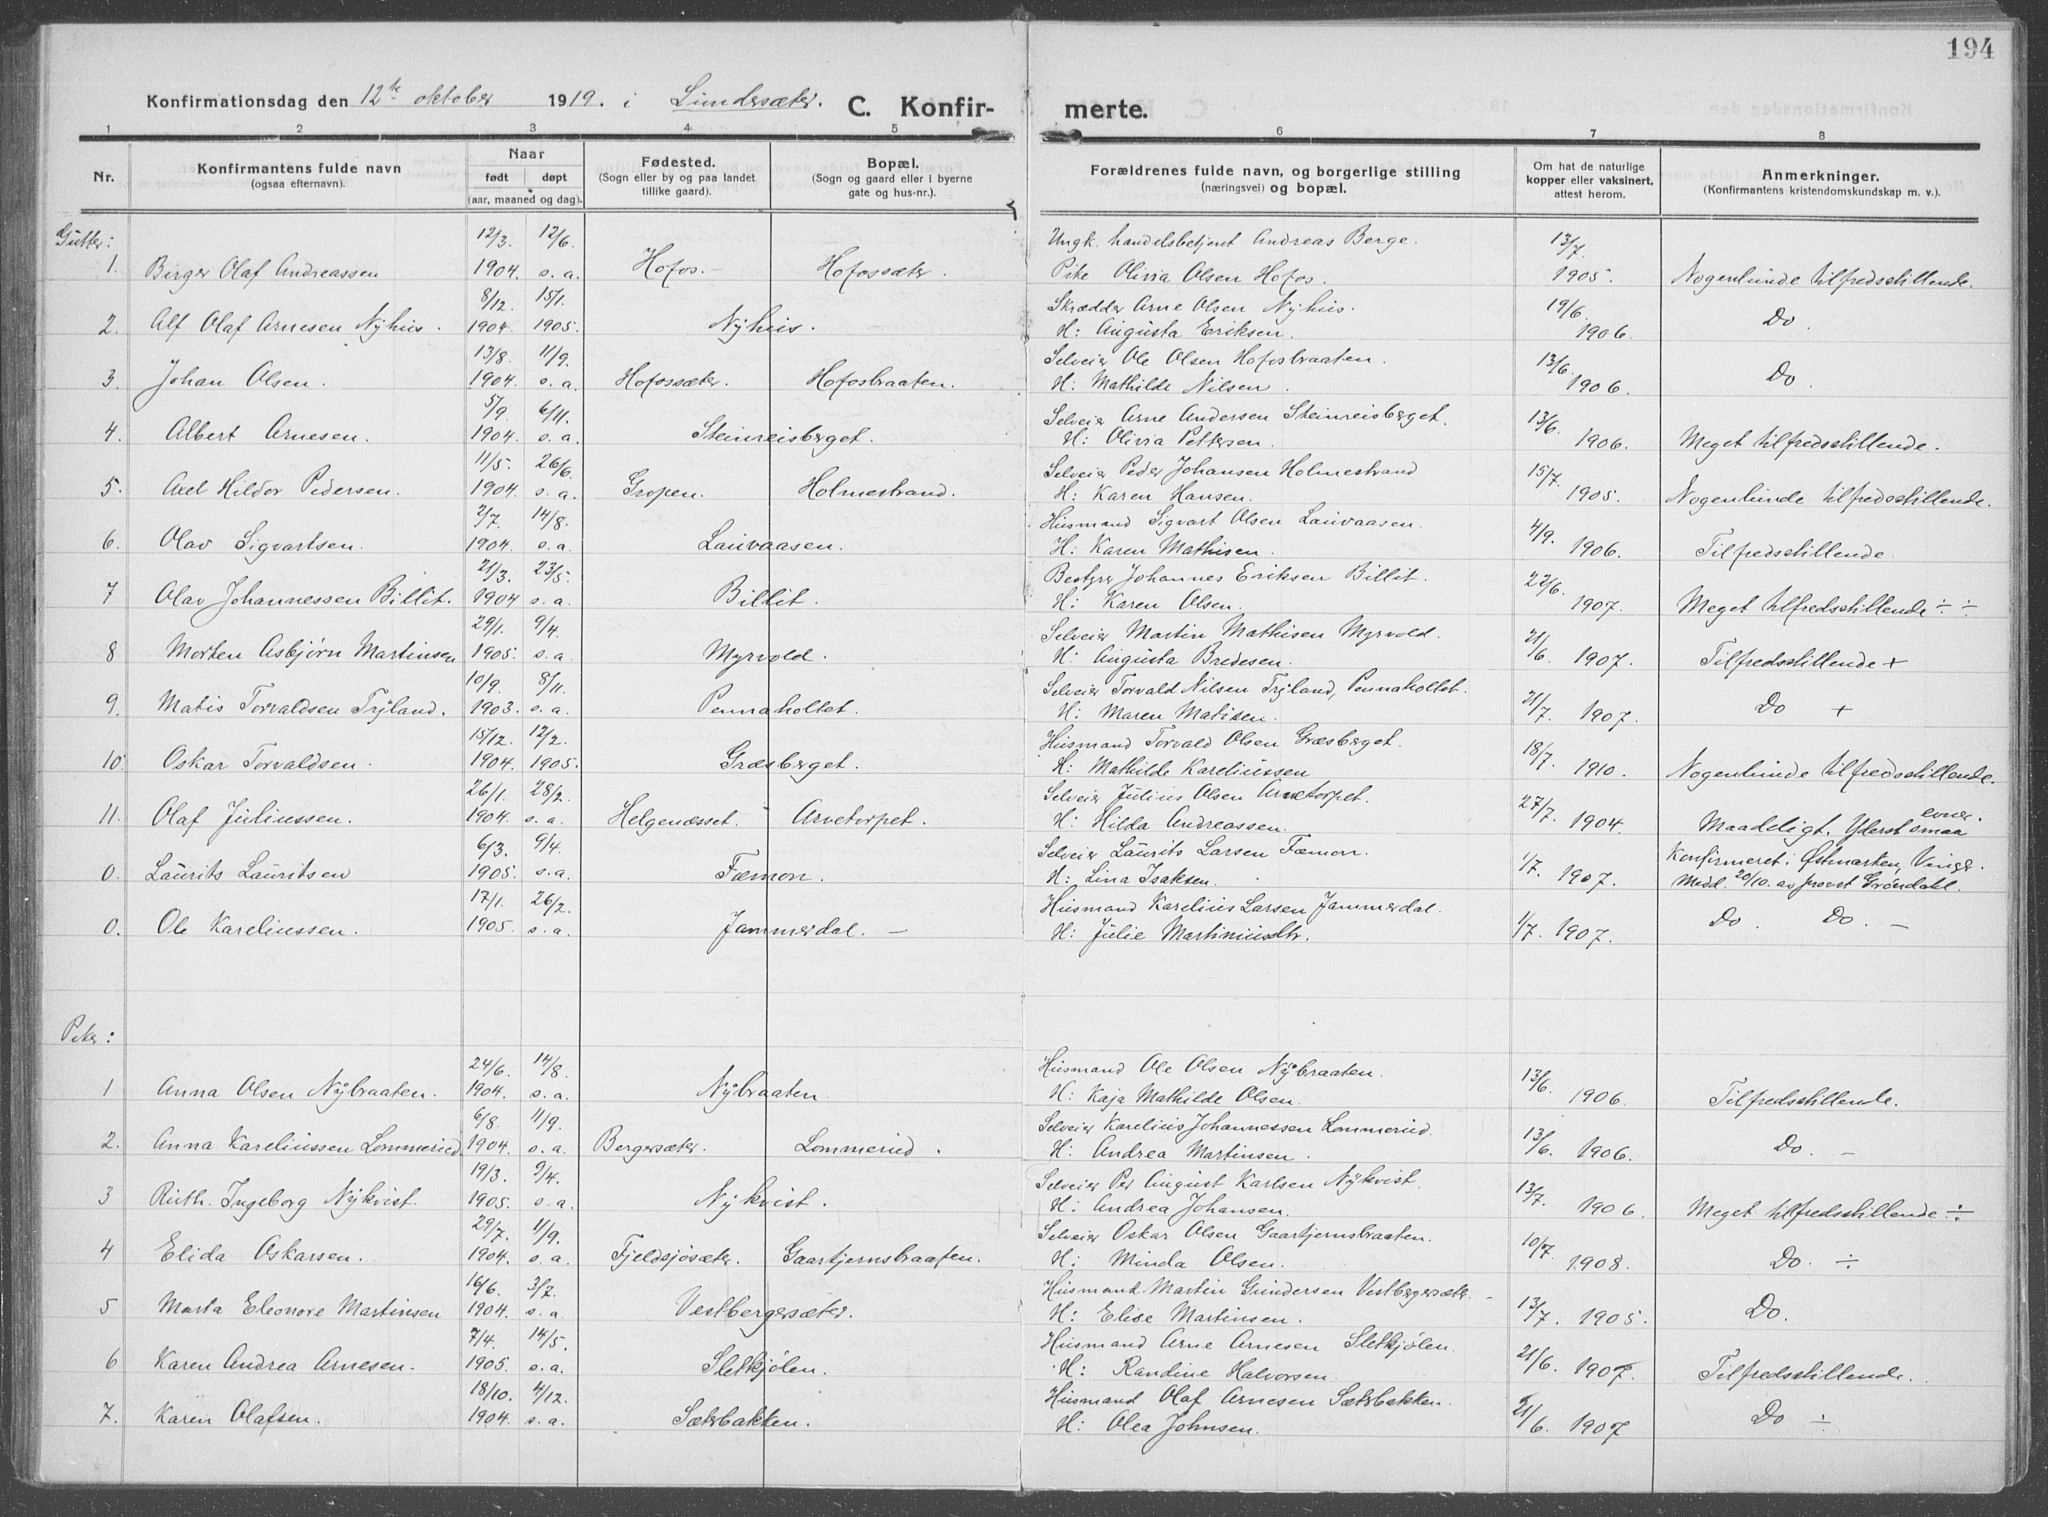 194
Konfirmationsdag den 12te oktober 1919. i Lundersæter. C. Konfir- merte.
1 2 3 4 5 6 7 8
Nr. Konfirmantens fulde navn (ogsaa efternavn). Naar født døpt (aar, maaned og dag). Fødested. (Sogn eller by og paa landet tillike gaard). Bopæl. (Sogn og gaard eller i byerne gate og hus-nr.). Forældrenes fulde navn, og borgerlige stilling (næringsvei) og bopæl. Om hat de naturlige kopper eller vaksinert, attest herom. Anmerkninger. (Konfirmantens kristendomskundskap m. v.).
Gutter: 12/3. 12/6. Ungk. handelsbetjent Andreas Berge. 13/7.
1. Birger Olaf Andreassen 1904. s. a. Hofos. - Hofossæter. Pike Olivia Olsen Hofos. 1905. Nogenlunde tilfredsstillende.
8/12. 15/1. Skrædder Arne Olsen Nyhus. 19/6.
2. Alf Olaf Arnesen Nyhus. 1904. 1905. Nyhus. H: Augusta Eriksen. 1906. Do.
13/8. 11/9. Selveier Ole Olsen Hofosbraaten. 13/6.
3. Johan Olsen. 1904. s. a. Hofossæter. Hofosbraaten. H: Mathilde Nilsen. 1906. Do.
5/9. 6/11. Selveier Arne Andersen Steinreisberget. 13/6.
4. Albert Arnesen. 1904. s. a. Steinreisberget. H: Olivia Pettersen. 1906. Meget tilfredsstillende.
11/5. 26/6. Selveier Peder Johansen Holmestrand 15/7.
5. Axel Hildor Pedersen. 1904. s. a. Gropen. Holmestrand. H: Karen Hansen. 1905. Nogenlunde tilfredsstillende.
2/7. 14/8. Husmand Sigvart Olsen Lauvaasen. 4/9.
6. Olav Sigvartsen. 1904. s. a. Lauvaasen. H: Karen Mathisen. 1906. Tilfredsstillende.
21/3. 23/5. Bestyrer Johannes Eriksen Billit. 22/6.
7 Olav Johannessen Billit. 1904 s. a. Billit. H: Karen Olsen. 1907. Meget tilfredsstillende ÷ ÷
29/1. 9/4. Selveier Martin Mathisen Myrvold. 21/6.
8 Morten Asbjørn Martinsen 1905. s. a. Myrvold. H: Augusta Bredesen. 1907. Tilfredsstillende +
10/9. 8/11. Selveier Torvald Nilsen Tryland, Pennaholtet. 21/7.
9. Matis Torvaldsen Tryland. 1903. s. a. Pennaholtet. H: Maren Matisen. 1907. Do +
15/12. 12/2. Husmand Torvald Olsen Græsberget. 18/7.
10. Oskar Torvaldsen. 1904. 1905. Græsberget. H: Mathilde Kareliussen 1910. Nogenlunde tilfredsstillende.
26/1. 28/2. Selveier Julius Olsen Arvetorpet. 27/7.
11. Olaf Juliussen. 1904. s. a. Helgenæsset. Arvetorpet. H: Hilda Andreassen. 1904. Maadeligt. Yderst smaa evner.
6/3. 9/4. Selveier Laurits Larsen Fæmon. 1/7. Konfirmeret i Østmarken, Vinger.
0. Laurits Lauritsen 1905. s. a. Fæmon. H: Lina Isaksen. 1907. Medd. 20/10. av provst Grøndahl.
17/1. 26/2. Husmand Karelius Larsen Jammerdal.
0. Ole Kareliussen. 1905. s. a. Jammerdal. - H: Julie Martiniusdtr. 1/7. 1907. Do. Do. -
Piker:
24/6. 14/8. Husmand Ole Olsen Nybraaten. 13/6.
1 Anna Olsen Nybraaten. 1904. s. a. Nybraaten. H: Kaja Mathilde Olsen. 1906. Tilfredsstillende.
6/8. 11/9. Selveier Karelius Johannessen Lommerud. 13/6.
2. Anna Kareliussen Lommerud 1904. s. a. Bergersæter. Lommerud. H: Andrea Martinsen. 1906. Do. -
19/3. 9/4. Selveier Per August Karlsen Nykvist. 13/7.
3 Ruth. Ingeborg Nykvist. 1905. s. a. Nykvist. H: Andrea Johansen. 1906. Meget tilfredsstillende ÷
29/7. 11/9. Selveier Oskar Olsen Gaartjernsbraaten. 10/7.
4 Elida Oskarsen. 1904. s. a. Fjeldsjøsæter. Gaartjernsbraaten. H: Minda Olsen. 1908. Do. ÷
16/6. 3/7. Husmand. Martin Gundersen Vestbergersæter. -
5 Marta Eleonore Martinsen 1904. s. a. Vestbergersæter. H: Elise Martinsen. 13/7. 1905. Do.
7/4. 14/5. Husmand Arne Arnesen Sletkjølen.
6 Karen Andrea Arnesen. 1905. s. a. Sletkjølen. H: Randine Halvorsen. 21/6. 1907. Tilfredsstillende.
18/10. 4/12. Husmand Olaf Arnesen Sætrbakken.
7. Karen Olafsen. 1904. s. a. Sætrbakken. H: Olea Johnsen. 21/6. 1907 Do ÷